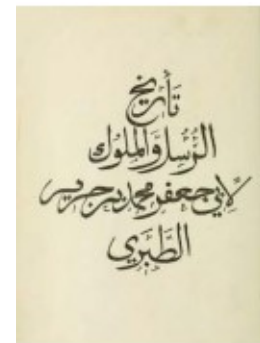 تأريخ
الرُّسل والملوك
لأبي جعفر محمد بن جرير
الطَّبَري